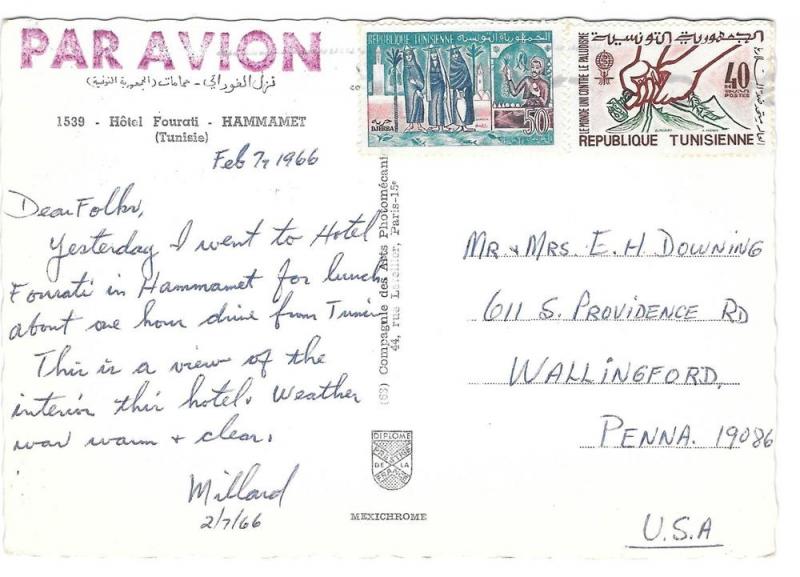 PAR AVION
نزل الفوراتي - حمامات (الجمهورية التونسية)
1539 - Hôtel Fourati - HAMMAMET
(Tunisie)
Feb 7, 1966
Dear Folks,
Yesterday I went to Hotel
Fourati in Hammamet for lunch
about one hour drive from Tunis
This is a view of the
interior this hotel. Weather
was warm + clear.
Millard
2/7/66
(SS) Compagnie des Arts Photomécani
44, rue Letellier, Paris-15e
DIPLOME
PRESTIGE
DE LA
FRANCE
MEXICHROME
REPUBLIQUE TUNISIENNE الجمهورية التونسية
جربة
DJERBA
50
LE MONDE UNI CONTRE LE PALUDISME
الجمهورية التونسية
40
POSTES
REPUBLIQUE TUNISIENNE
MR + MRS. E. H DOWNING
611 S. PROVIDENCE RD
WALLINGFORD,
PENNA. 19086
U.S.A